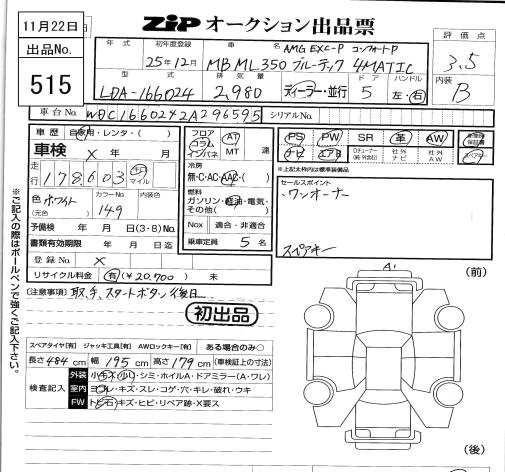 11月22日
出品No.
515
ZIP オークション出品票
年式
初年度登録 25年12月
車名 AMG EXC-P コンフォートP
MB ML350 ブルーテック 4MATIC
評価点 3.5
型式 LDA-166024
排気量 2,980
ディーラー・並行
ドア 5
ハンドル 左・右
内装 B
車台No. WDC1660242A296595
シリアルNo.
車歴 自家用・レンタ・( )
車検 × 年 月
走行 178,603 キロ マイル
色 ホワイト
(元色)
カラーNo. 149
内装色
予備検 年 月 日(3・8)No.
書類有効期限 年 月 日迄
登録No. ×
リサイクル料金 有(¥20,700) 未
フロア コラム インパネ
AT MT 速
冷房 無・C・AC・AAC・( )
燃料 ガソリン・軽油・電気・その他( )
Nox 適合・非適合
乗車定員 5 名
PS PW SR 革 AW
ナビ エアB
社外ナビ
社外AW
スペアキー
※上記太枠内は標準装備品
セールスポイント
ワンオーナー
スペアキー
[注意事項] 取、キ、スタートボタン後日
初出品
スペアタイヤ[有] ジャッキ工具[有] AWロックキー[有] ある場合のみ○
長さ 484 cm 幅 195 cm 高さ 179 cm (車検証上の寸法)
検査記入
外装 小キズ・小凹・シミ・ホイルA・ドアミラー(A・ワレ)
室内 ヨゴレ・キズ・スレ・コゲ・穴・キレ・破れ・ウキ
FW トビ石・キズ・ヒビ・リペア跡・X要ス
A1
(前)
(後)
※ご記入の際はボールペンで強くご記入下さい。